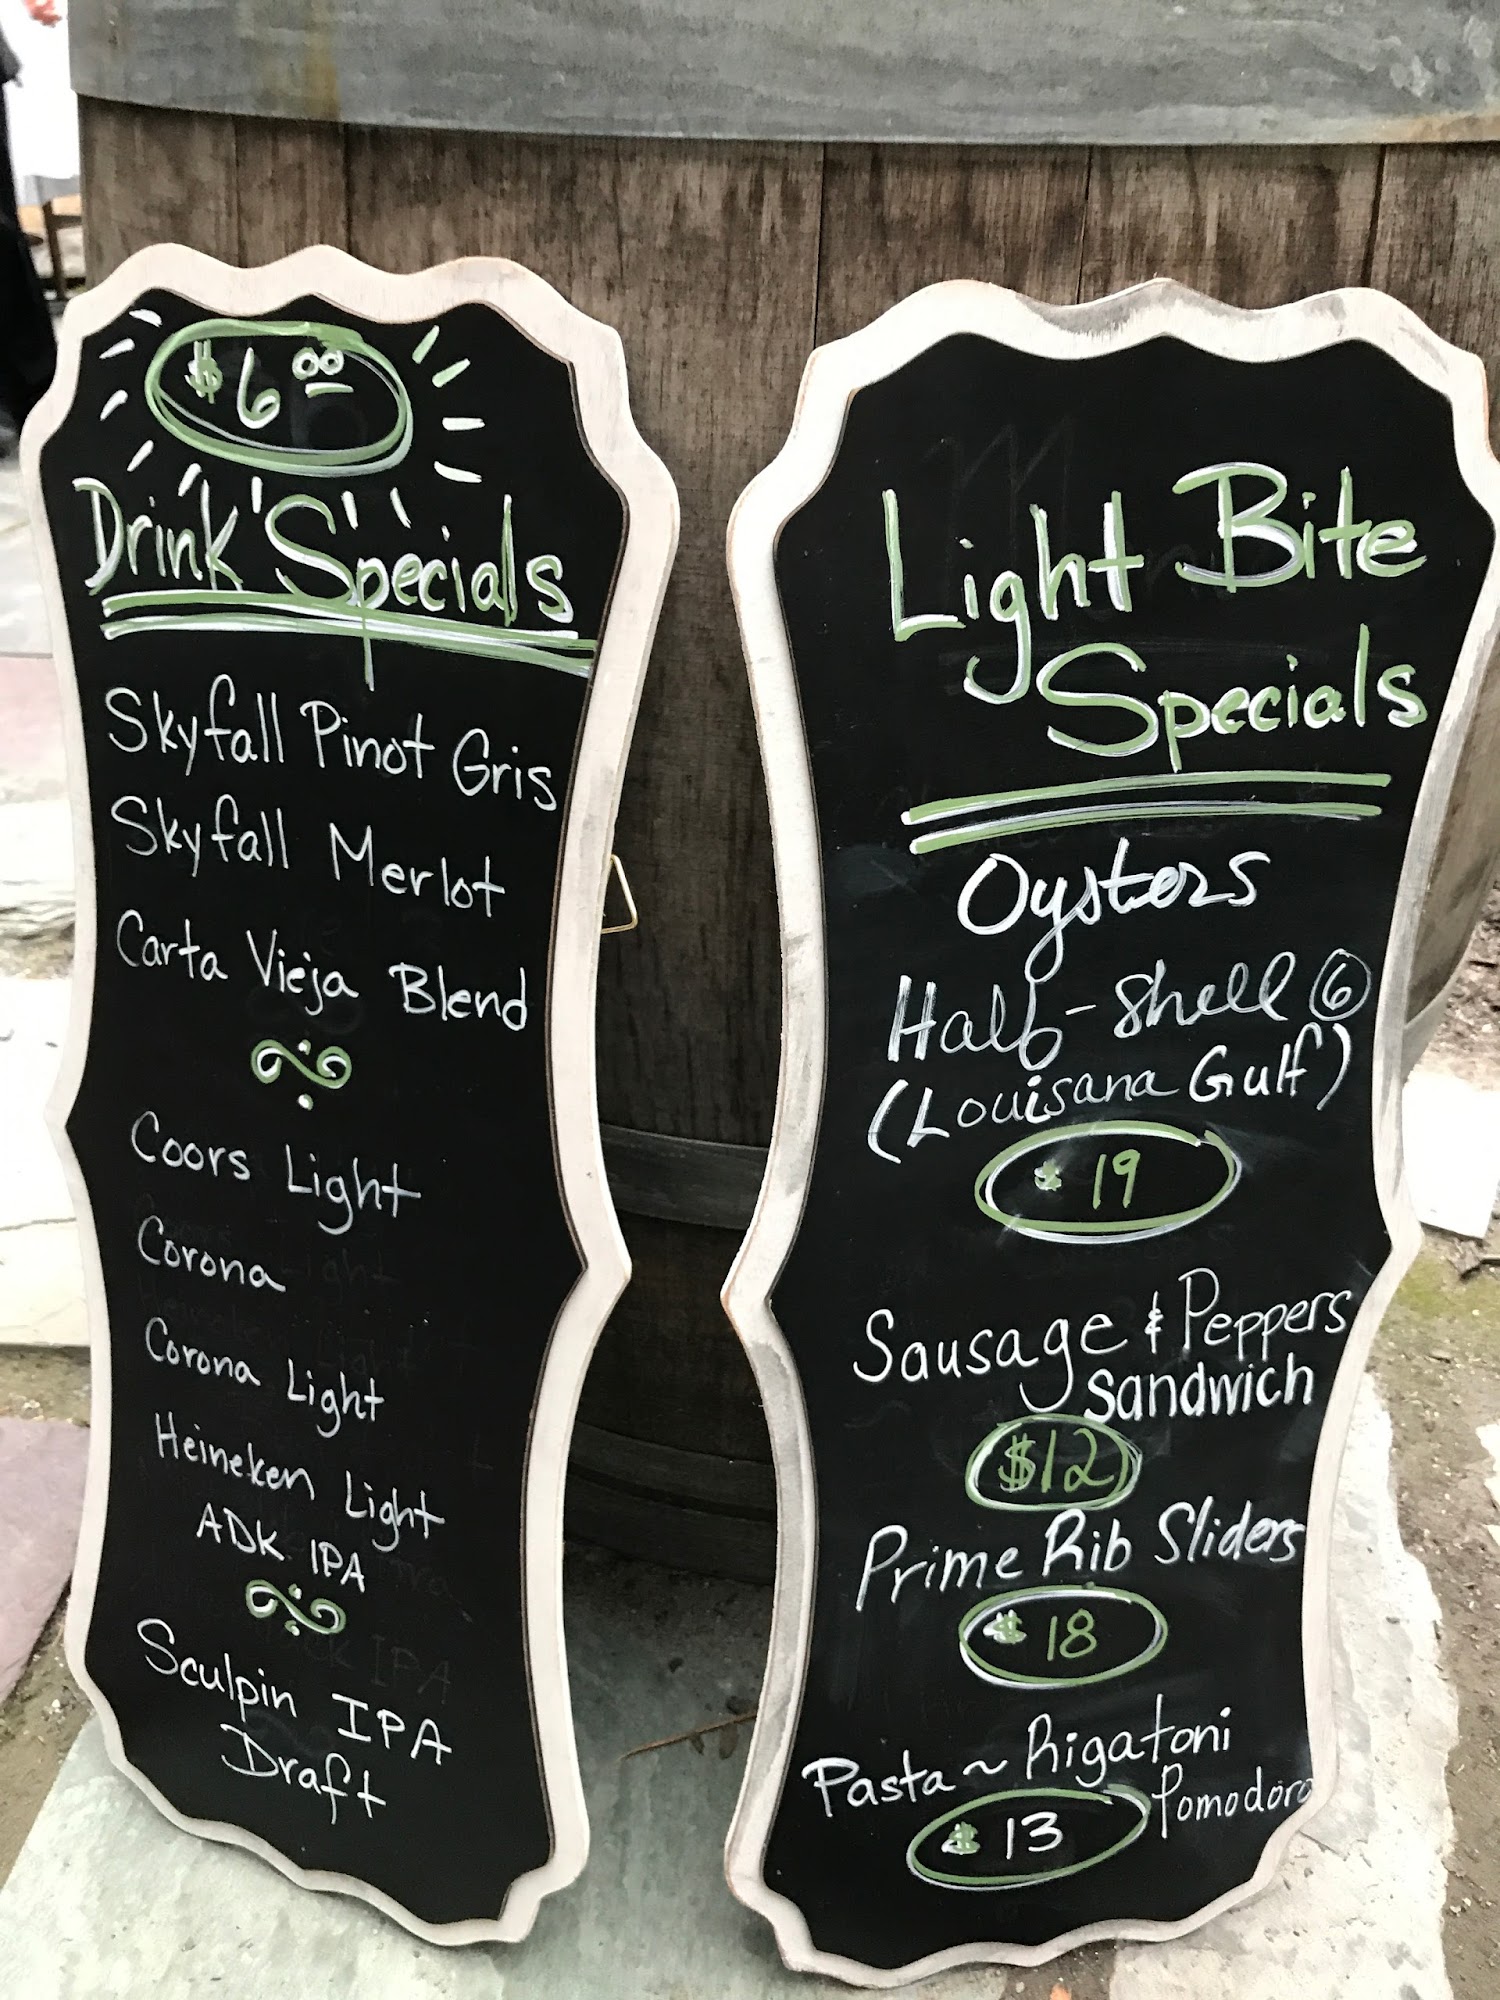 $6.00
Drink Specials
Skyfall Pinot Gris
Skyfall Merlot
Carta Vieja Blend
Coors Light
Corona
Corona Light
Heineken Light
ADK IPA
Sculpin IPA
Draft
Light Bite
Specials
Oysters
Half-Shell 6
(Louisana Gulf)
$ 19
Sausage & Peppers
Sandwich
$12
Prime Rib Sliders
$ 18
Pasta ~ Rigatoni
Pomodoro
$ 13